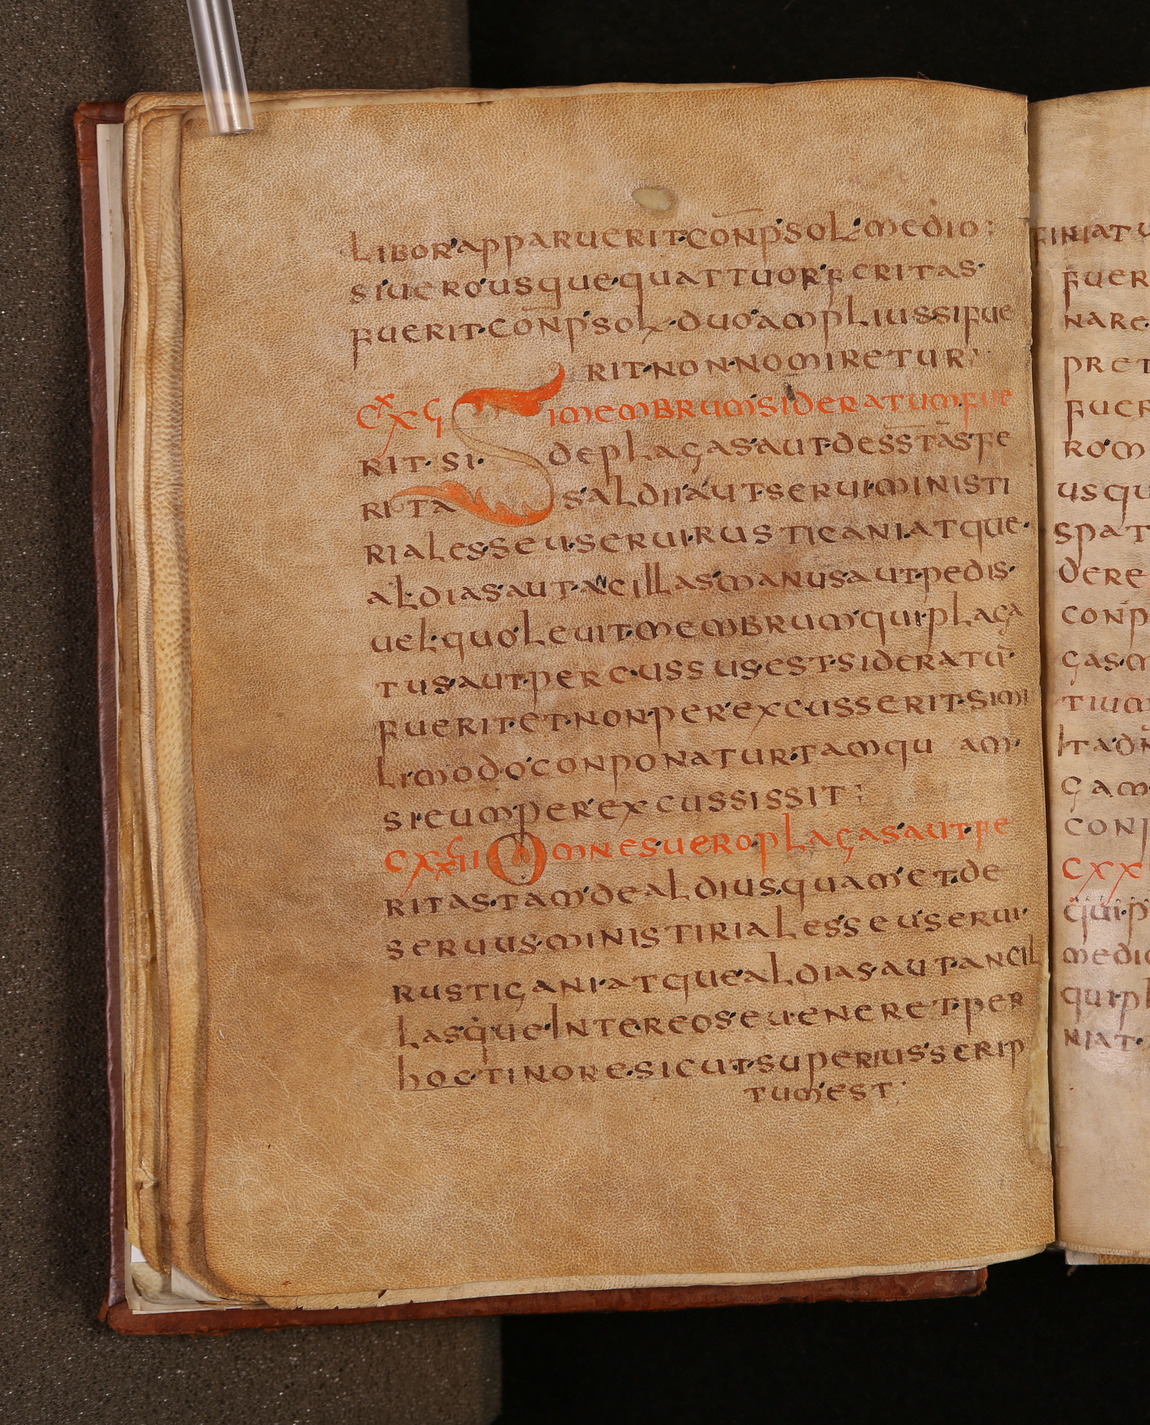 LIBOR·APPARUERIT·CONP̄·SOL·MEDIO:
SI UERO·USQUE·QUATTUOR·FERITAS·
FUERIT·CONP̄·SOL·DUO·AMPLIUS SI FUE
RIT·NON NOMIRETUR;
CXXU SI MEMBRUM SIDERATUM FUE
RIT·SI· DE PLAGAS·AUT·DE SS̄TAS FE
RITA S·ALDII·AUT·SERUI·MINISTI
RIALES·SEU·SERUI·RUSTICANI·ATQUE·
ALDIAS·AUT·ANCILLAS·MANUS·AUT·PEDIS·
UEL·QUOLEUIT·MEMBRUM·QUI·PLAGA
TUS·AUT·PERCUSSUS·EST·SIDERATŪ·
FUERIT·ET·NON·PEREXCUSSERIT·SIMI
LI·MODO·CONPONATUR·TAMQU AM·
SI EUM PEREXCUSSISSIT:
CXXUI OMNES UERO PLAGAS AUT FE
RITAS·TAM DE ALDIUS·QUAM ET·DE
SERUUS·MINISTIRIALES SEU SERUI·
RUSTIGANI·ATQUE ALDIAS·AUT·ANCIL
LAS QUE INTER EOS EUENERET·PER
HOC·TINORE·SICUT·SUPERIUS SCRIP
TUM EST;
FINIATU
FUER
NARE
PRET
FUER
ROM
USQU
SPAT
DERE
CONP
GAS·M
TIUM
GAM
CXX
QUI·P
MEDIO
QUI·PL
NIAT·